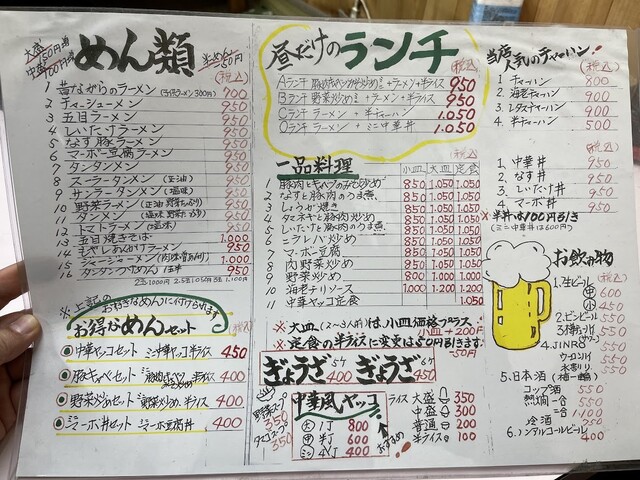 大盛150円増
中盛100円増
めん類
半めん50円
(税込)
1 昔ながらのラーメン 700
2 チャーシューメン 950
3 五目ラーメン 950
4 しいたけラーメン 950
5 なす豚ラーメン 950
6 マーボー豆腐ラーメン 950
7 タンタンメン 950
8 スーラータンメン 950
9 サンラータンメン 950
10 野菜ラーメン 950
11 タンメン 950
12 トマトラーメン 950
13 五目焼きそば 1.000
14 もやしあんかけラーメン 950
15 ジャージャーメン 1.000
16 タンタンつけめん 950
※上記の
おすきなめんに付けられます
お得なめんセット (税込)
中華ヤッコセット ミニ中華ヤッコ半ライス 450
豚キャベセット 400
野菜炒めセット 野菜炒め、半ライス 400
ミニマーボ丼セット ミニマーボ豆腐丼 400
昼だけのランチ (税込)
Aランチ +ラーメン+半ライス 950
Bランチ 野菜炒め +ラーメン+半ライス 950
Cランチ ラーメン + 半チャーハン 1.050
Dランチ ラーメン + ミニ中華丼 1.050
一品料理 (税込)
小皿 大皿 定食
1 豚肉とキャベツのみそ炒め 850 1.050 1.050
2 なすと豚肉のうま煮 850 1.050 1.050
3 しょうが焼き 850 1.050 1.050
4 タマネギと豚肉炒め 850 1.050 1.050
5 しいたけと豚肉のうま煮 850 1.050 1.050
6 ニラレバ炒め 850 1.050 1.050
7 マーボー豆腐 850 1.050 1.050
8 肉野菜炒め 850 1.050 1.050
9 野菜炒め 850 1.000 1.000
10 海老チリソース 1.000 1.200 1.200
11 中華ヤッコ定食 1.050
※大皿(2〜3人前)は、小皿価格プラス
小皿+200円
※定食の半ライスに変更は50円引きます
-50円
ぎょうざ 5ケ 400
ぎょうざ 6ケ 450
野菜スープ 350
タマゴスープ 350
中華風ヤッコ
大 1丁 800
中 半丁 600
400
おすすめ!
ライス 大盛 350
中盛 300
普通 200
半ライス 100
当店人気のチャーハン! (税込)
1 チャーハン 800
2 海老チャーハン 900
3 レタスチャーハン 900
4 半チャーハン 500
(税込)
1 中華丼 950
2 なす丼 950
3 しいたけ丼 950
4 マーボ丼 950
※半丼は100円引き
(ミニ中華丼は600円)
お飲み物
(税込)
1.生ビール
中 600
小 450
2.ビンビール 550
3 550
4.JINRO 550
ウーロンハイ 550
水割り 550
5.日本酒
コップ酒 550
熱燗一合 550
二合 1.100
冷酒 750
6.ノンアルコールビール 400